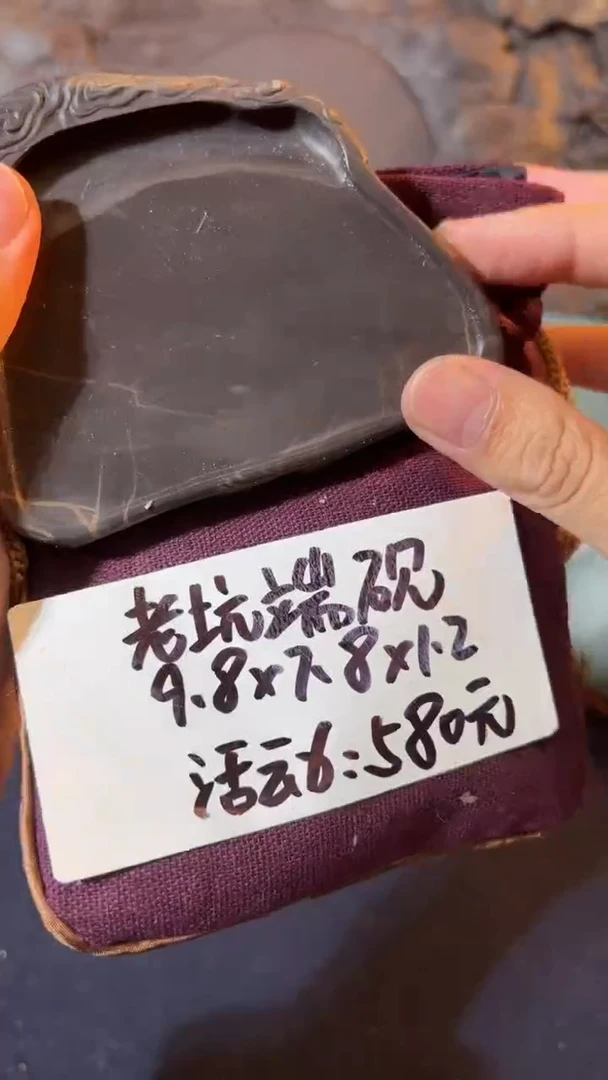 老坑端砚
9.8×7.8×1.2
活动:580元